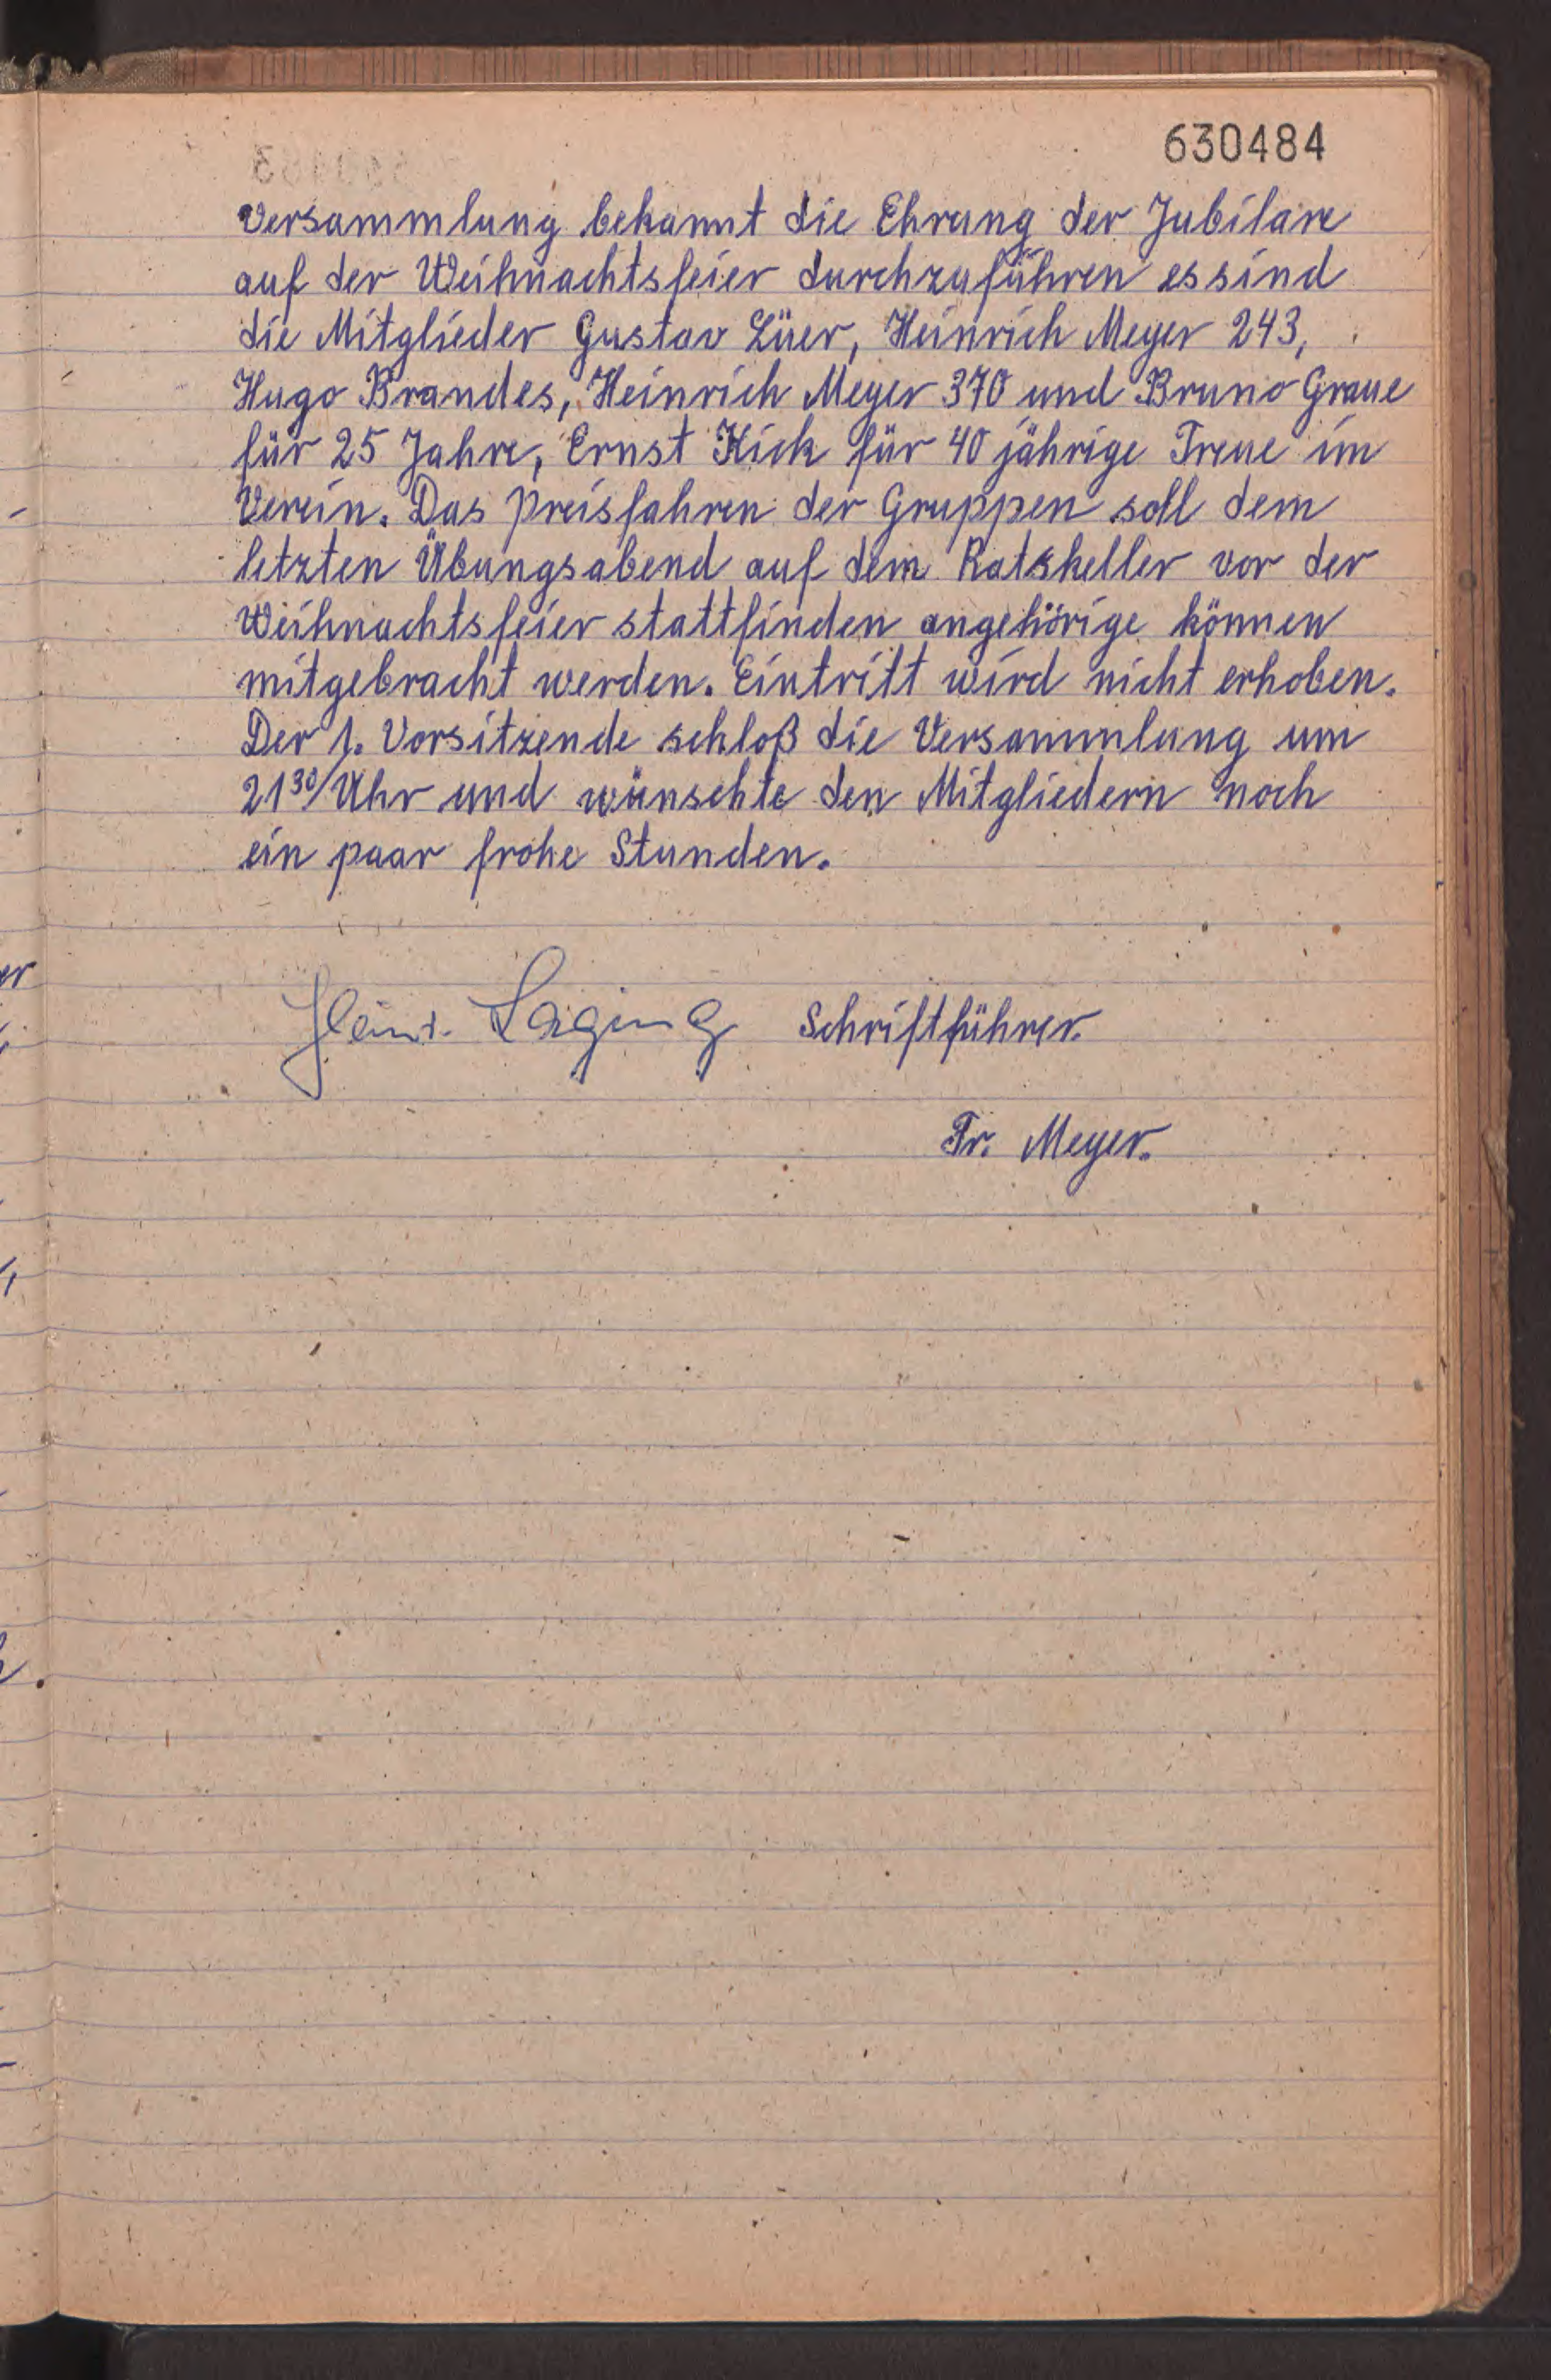 630484
Versammlung bekannt die Ehrung der Jubilare
auf der Weihnachtsfeier durchzuführen es sind
die Mitglieder Gustav Lüer, Heinrich Meyer 243,
Hugo Brandes, Heinrich Meyer 370 und Bruno Graue
für 25 Jahre, Ernst Kick für 40 jährige Treue im
Verein. Das Preisfahren der Gruppen soll dem
letzten Übungsabend auf dem Ratskeller vor der
Weihnachtsfeier stattfinden angehörige können
mitgebracht werden. Eintritt wird nicht erhoben.
Der 1. Vorsitzende schloß die Versammlung um
21³⁰ Uhr und wünschte den Mitgliedern noch
ein paar frohe Stunden.
Heinr. Laging Schriftführer.
Fr. Meyer.